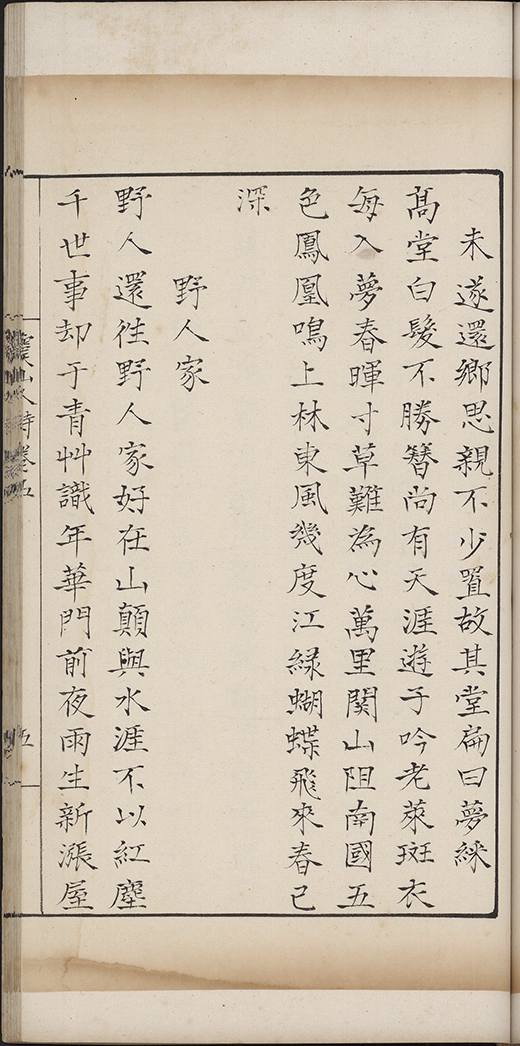 未遂還鄉思親不少置故其堂扁曰夢綵
髙堂白髮不勝簪尚有天涯遊子吟老萊斑衣
每入夢春暉寸草難為心萬里関山阻南國五
色鳳凰鳴上林東風幾度江緑蝴蝶飛來春已
深
野人家
野人還往野人家好在山顛與水涯不以紅塵
千世事却于青艸識年華門前夜雨生新漲屋
山人詩卷五
五